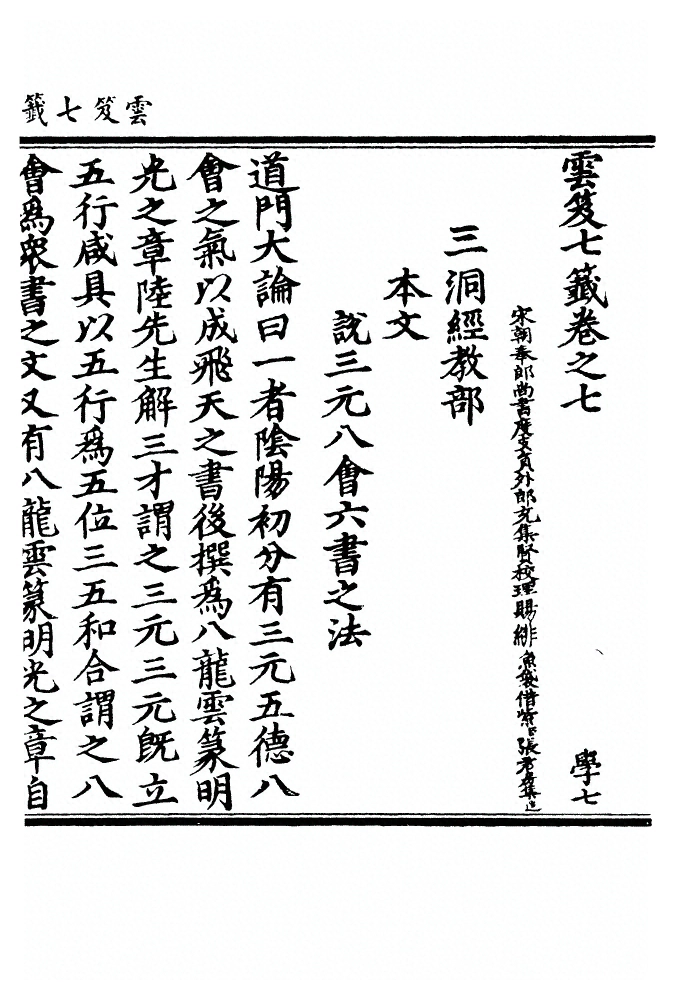 雲笈七籤
雲笈七籤卷之七
學七
宋朝奉郎尚書度支員外郎充集賢校理賜緋魚袋借紫臣張君房集進
三洞經教部
本文
說三元八會六書之法
道門大論曰一者陰陽初分有三元五德八
會之氣以成飛天之書後撰爲八龍雲篆明
光之章陸先生解三才謂之三元三元既立
五行咸具以五行爲五位三五和合謂之八
會爲衆書之文又有八龍雲篆明光之章自